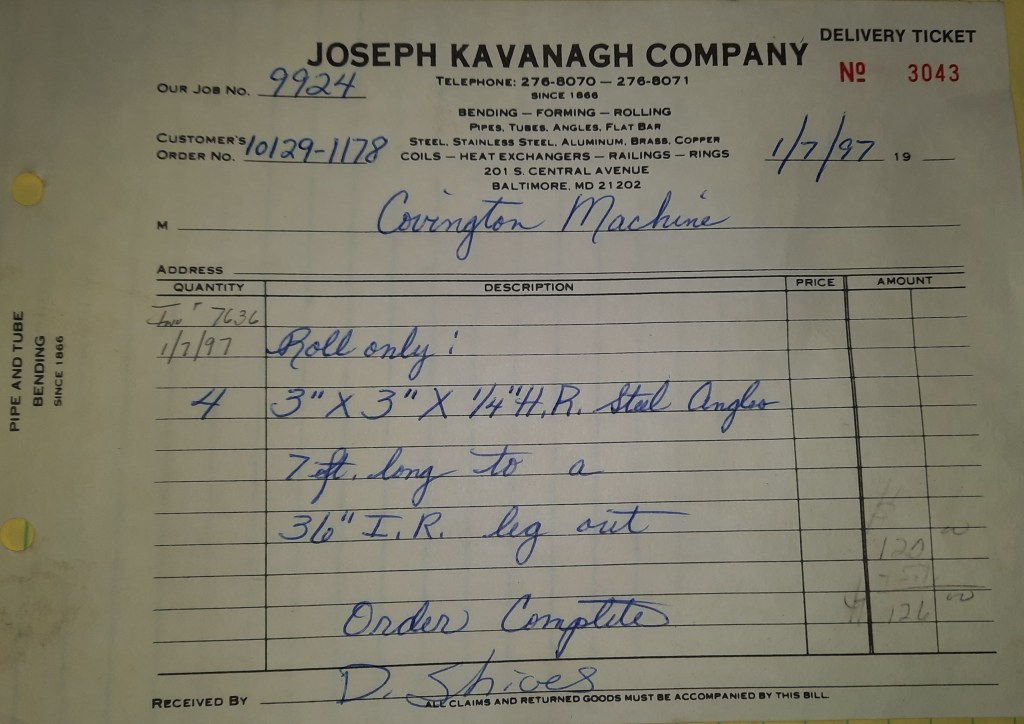 DELIVERY TICKET
JOSEPH KAVANAGH COMPANY
Nº 3043
OUR JOB NO. 9924
TELEPHONE: 276-8070 — 276-8071
SINCE 1866
BENDING — FORMING — ROLLING
PIPES, TUBES, ANGLES, FLAT BAR
CUSTOMER'S ORDER NO. 10129-1178
STEEL, STAINLESS STEEL, ALUMINUM, BRASS, COPPER
COILS — HEAT EXCHANGERS — RAILINGS — RINGS
1/7/97 19
201 S. CENTRAL AVENUE
BALTIMORE, MD 21202
M Covington Machine
ADDRESS
QUANTITY DESCRIPTION PRICE AMOUNT
7636
1/7/97 Roll only:
4 3" X 3" X 1/4" H.R. Steel Angles
7 ft. long to a
36" I.R. leg out
120
Order Complete
$ 126
RECEIVED BY D. Shives
ALL CLAIMS AND RETURNED GOODS MUST BE ACCOMPANIED BY THIS BILL
PIPE AND TUBE
BENDING
SINCE 1866